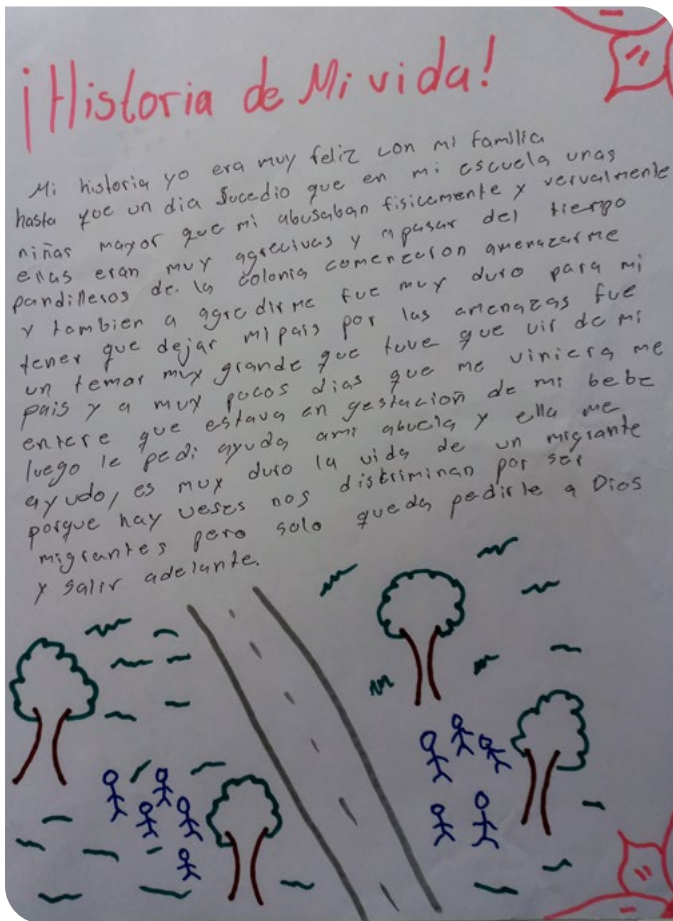 ¡Historia de Mi vida!
Mi historia yo era muy feliz con mi familia
hasta que un dia Sucedio que en mi escuela unas
niñas mayor que mi abusaban fisicamente y vervalmente
ellas eran muy agrecivas y apasar del tiempo
pandilleros de la colonia comenzaron amenazarme
y tambien a agredirme fue muy duro para mi
tener que dejar mi pais por las amenazas fue
un temor muy grande que tuve que uir de mi
pais y a muy pocos dias que me viniera me
entere que estava en gestacion de mi bebe
luego le pedi ayuda ami abuela y ella me
ayudo, es muy duro la vida de un migrante
porque hay veses nos distriminan por ser
migrantes pero solo queda pedirle a Dios
y salir adelante.